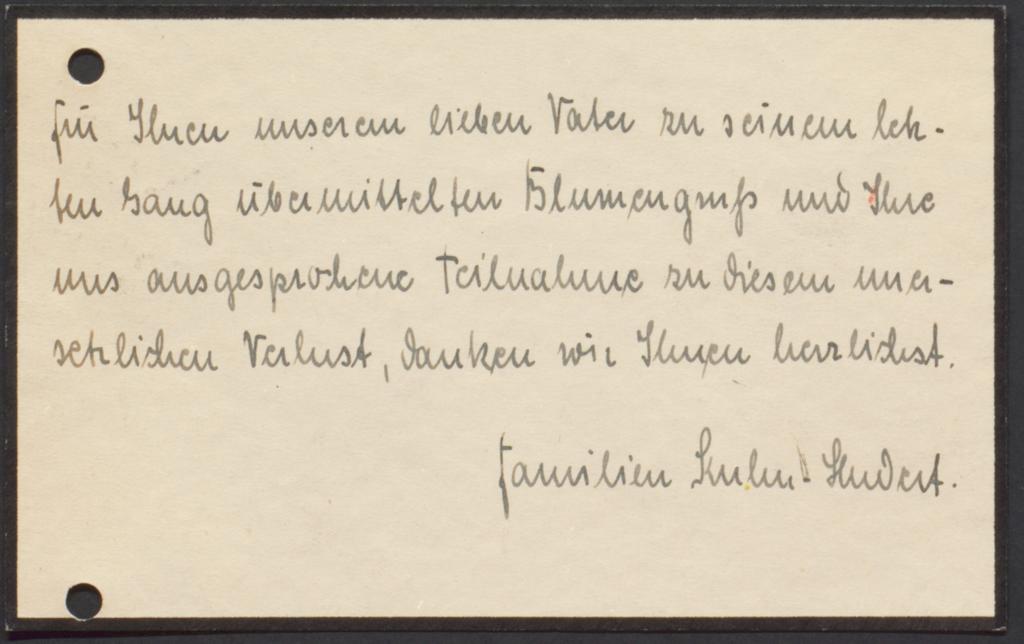 Für Ihren unserem lieben Vater zu seinem letz-
ten Gang übermittelten Blumengruß und Ihre
uns ausgesprochene Teilnahme zu diesem uner-
setzlichen Verlust, danken wir Ihnen herzlichst.
Familien